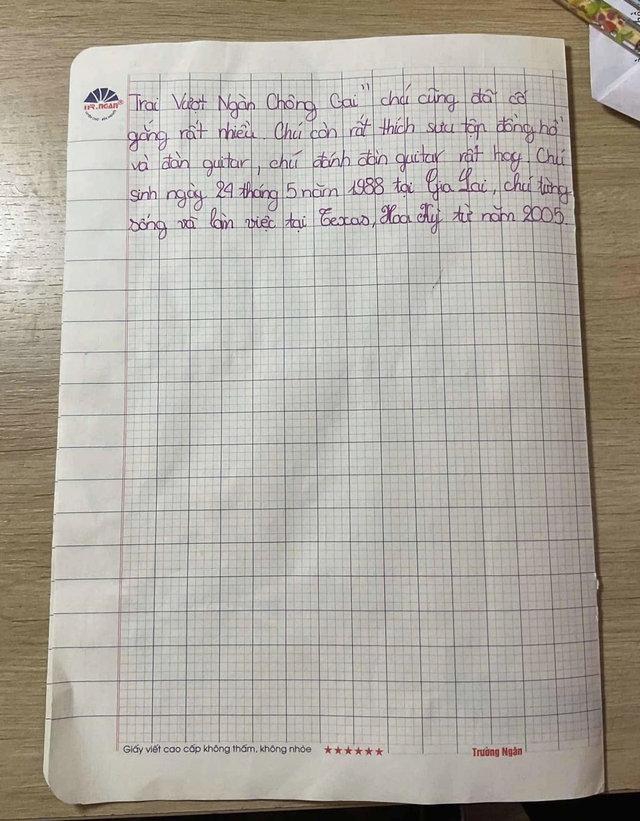 TR.NGAN®
Trai Vượt Ngàn Chông Gai" chú cũng đã cố
gắng rất nhiều. Chú còn rất thích sưu tập đồng hồ
và đàn guitar, chú đánh đàn guitar rất hay. Chú
sinh ngày 24 tháng 5 năm 1988 tại Gia Lai, chú từng
sống và làm việc tại Texas, Hoa Kỳ từ năm 2005.
Giấy viết cao cấp không thấm, không nhòe ★★★★★★ Trường Ngân